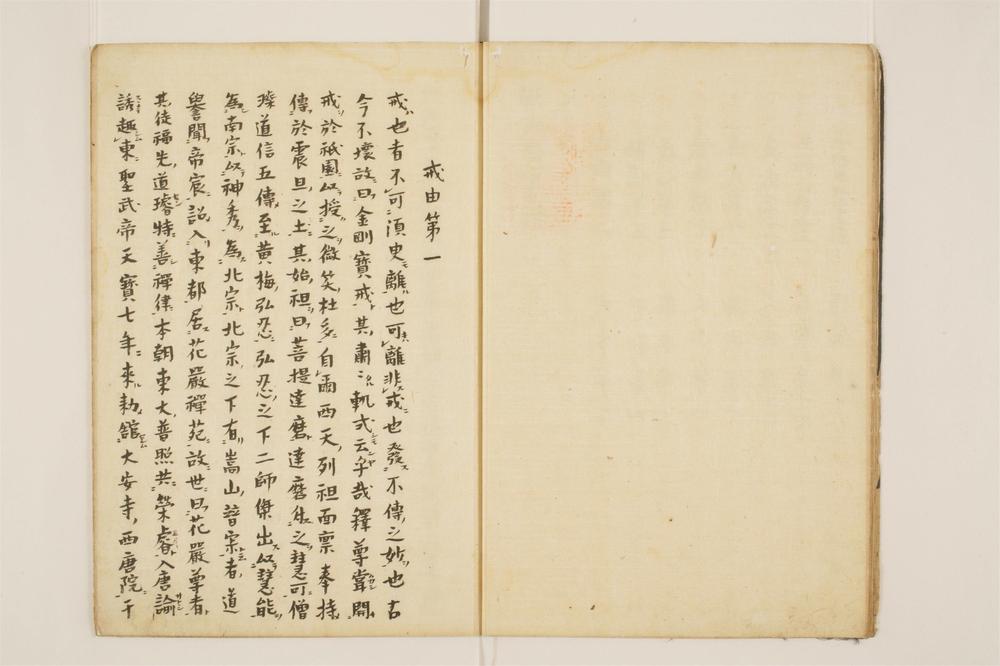 戒由第一
戒也者不可須臾離也可離非戒也發不傳之妙也古
今不壞故曰金剛寶戒其肅々軌式云乎哉釋尊嘗開
戒於祇園以授之微笑杜多自爾西天列祖面稟奉持
傳於震旦之土其始祖曰菩提達磨達磨傳之慧可僧
璨道信五傳至黃梅弘忍弘忍之下二師傑出以慧能
為南宗以神秀為北宗北宗之下有嵩山普寂者道
譽聞帝宸詔入東都居花嚴禪苑故世曰花嚴尊者
其徒福先道璿特善禪律本朝東大普照共榮睿入唐諭
誘趣東聖武帝天寶七年來勅館大安寺西唐院于